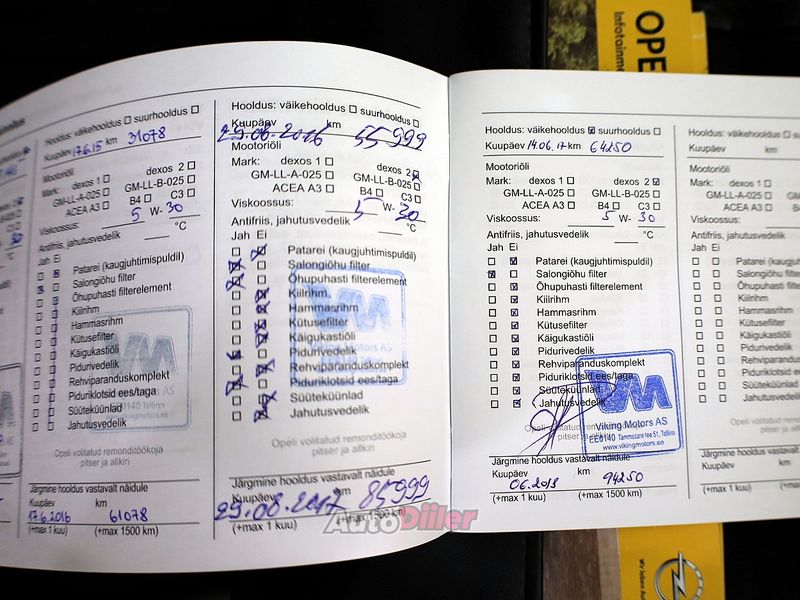 Hooldus: väikehooldus suurhooldus
Kuupäev 17.6.15 km 31078
Mootoriõli
Mark: dexos 1 dexos 2
GM-LL-A-025 GM-LL-B-025
ACEA A3 B4 C3
Viskoossus: 5 W- 30
Antifriis, jahutusvedelik °C
Jah Ei
Patarei (kaugjuhtimispuldil)
Salongiõhu filter
Õhupuhasti filterelement
Kiilrihm
Hammasrihm
Kütusefilter
Käigukastiõli
Pidurivedelik
Rehviparanduskomplekt
Piduriklotsid ees/taga
Süüteküünlad
Jahutusvedelik
Opeli volitatud remonditöökoja
pitser ja allkiri
Järgmine hooldus vastavalt näidule
Kuupäev km
17.6.2016 61078
(+max 1 kuu) (+max 1500 km)
Hooldus: väikehooldus suurhooldus
Kuupäev km
29.08.2016 55999
Mootoriõli
Mark: dexos 1 dexos 2
GM-LL-A-025 GM-LL-B-025
ACEA A3 B4 C3
Viskoossus: 5 W- 30
Antifriis, jahutusvedelik °C
Jah Ei
Patarei (kaugjuhtimispuldil)
Salongiõhu filter
Õhupuhasti filterelement
Kiilrihm
Hammasrihm
Kütusefilter
Käigukastiõli
Pidurivedelik
Rehviparanduskomplekt
Piduriklotsid ees/taga
Süüteküünlad
Jahutusvedelik
Opeli volitatud remonditöökoja
pitser ja allkiri
Järgmine hooldus vastavalt näidule
Kuupäev km
29.08.2017 85999
(+max 1 kuu) (+max 1500 km)
Hooldus: väikehooldus suurhooldus
Kuupäev 14.06.17 km 64250
Mootoriõli
Mark: dexos 1 dexos 2
GM-LL-A-025 GM-LL-B-025
ACEA A3 B4 C3
Viskoossus: 5 W- 30
Antifriis, jahutusvedelik °C
Jah Ei
Patarei (kaugjuhtimispuldil)
Salongiõhu filter
Õhupuhasti filterelement
Kiilrihm
Hammasrihm
Kütusefilter
Käigukastiõli
Pidurivedelik
Rehviparanduskomplekt
Piduriklotsid ees/taga
Süüteküünlad
Jahutusvedelik
Viking Motors AS
EE0140 Tammsaare tee 51, Tallinn
www.vikingmotors.ee
Opeli volitatud
pitser ja
Järgmine hooldus vastavalt näidule
Kuupäev km
06.2018 94250
(+max 1 kuu) (+max 1500 km)
Hooldus: väikehooldus
Kuupäev km
Mootoriõli
Mark: dexos 1
GM-LL-A-025
ACEA A3
Viskoossus:
Antifriis, jahutusvedelik
Jah Ei
Patarei
Salongiõhu
Õhupuhasti
Kiilrihm
Hammasrihm
Kütusefilter
Käigukastiõli
Pidurivedelik
Süüteküünlad
Opeli volitatud
pitser
Järgmine hooldus
Kuupäev
(+max 1 kuu)
AutoDiiler